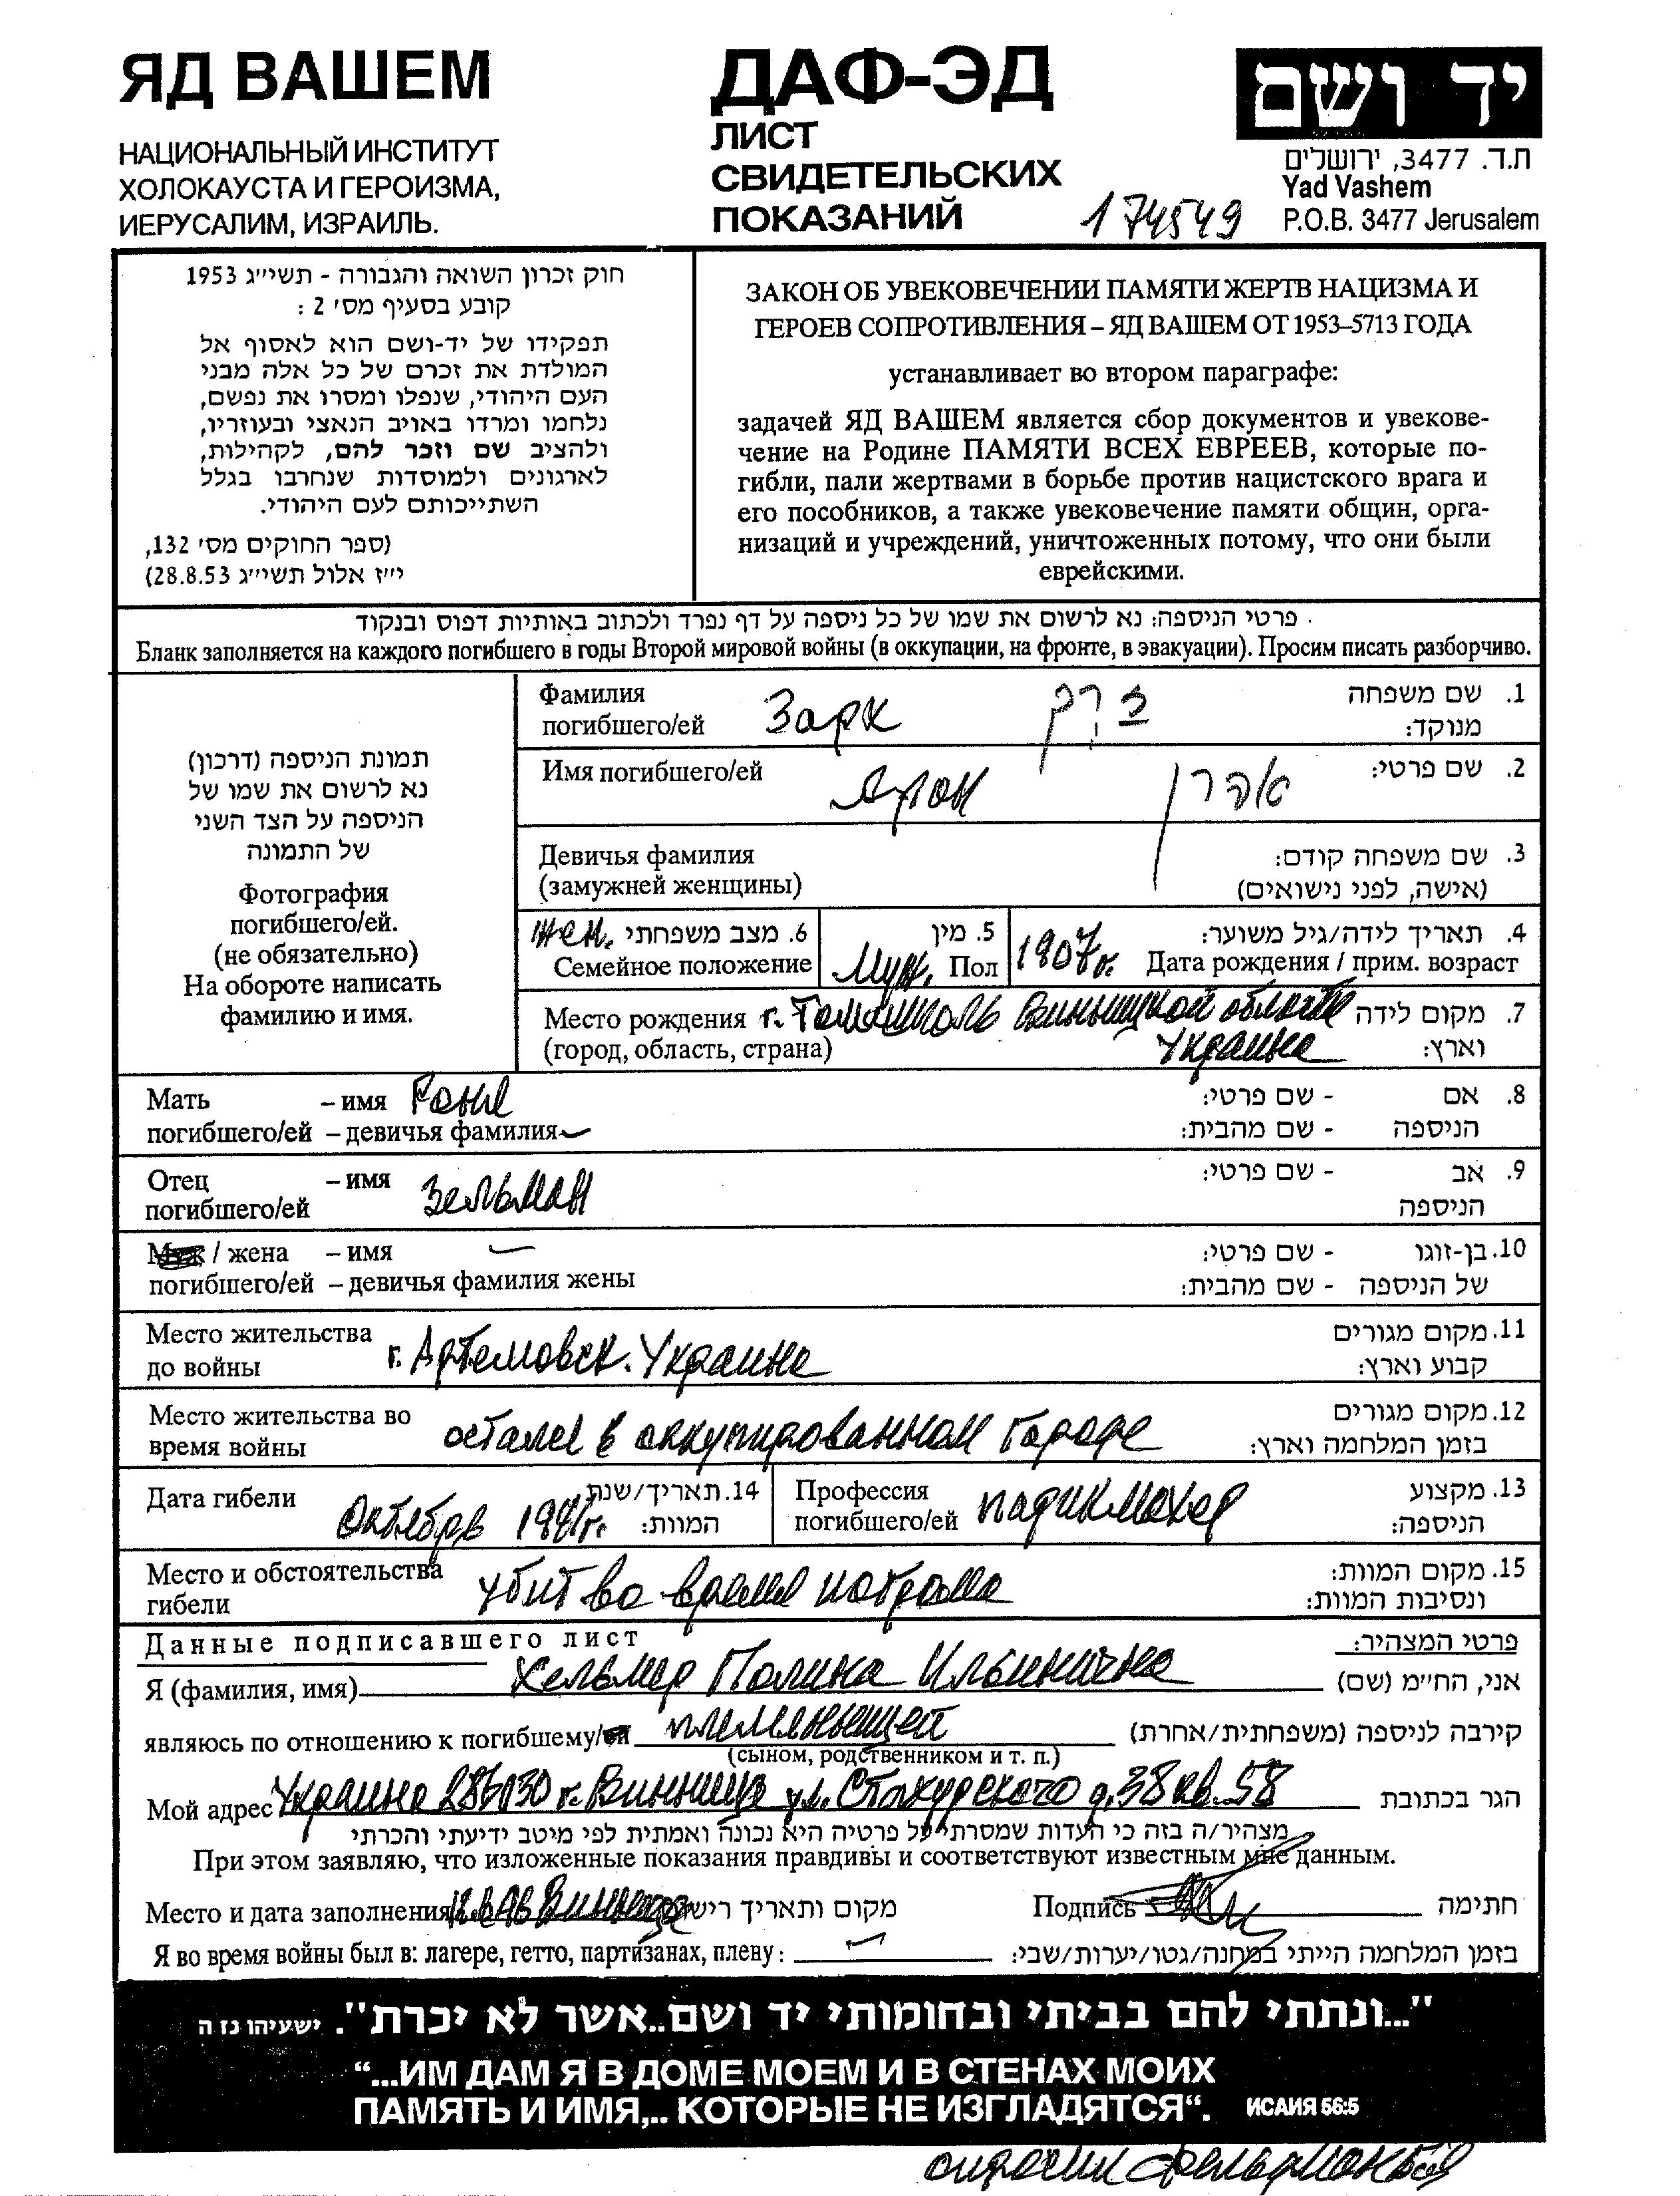 ЯД ВАШЕМ
НАЦИОНАЛЬНЫЙ ИНСТИТУТ
ХОЛОКАУСТА И ГЕРОИЗМА,
ИЕРУСАЛИМ, ИЗРАИЛЬ.
ДАФ-ЭД
ЛИСТ
СВИДЕТЕЛЬСКИХ
ПОКАЗАНИЙ
174549
יד ושם
ת.ד. 3477, ירושלים
Yad Vashem
P.O.B. 3477 Jerusalem
חוק זכרון השואה והגבורה - תשי״ג 1953
קובע בסעיף מס׳ 2 :
תפקידו של יד-ושם הוא לאסוף אל
המולדת את זכרם של כל אלה מבני
העם היהודי, שנפלו ומסרו את נפשם,
נלחמו ומרדו באויב הנאצי ובעוזריו,
ולהציב שם וזכר להם, לקהילות,
לארגונים ולמוסדות שנחרבו בגלל
השתייכותם לעם היהודי.
(ספר החוקים מס׳ 132,
י״ז אלול תשי״ג 28.8.53)
ЗАКОН ОБ УВЕКОВЕЧЕНИИ ПАМЯТИ ЖЕРТВ НАЦИЗМА И
ГЕРОЕВ СОПРОТИВЛЕНИЯ – ЯД ВАШЕМ ОТ 1953–5713 ГОДА
устанавливает во втором параграфе:
задачей ЯД ВАШЕМ является сбор документов и увекове-
чение на Родине ПАМЯТИ ВСЕХ ЕВРЕЕВ, которые по-
гибли, пали жертвами в борьбе против нацистского врага и
его пособников, а также увековечение памяти общин, орга-
низаций и учреждений, уничтоженных потому, что они были
еврейскими.
פרטי הניספה: נא לרשום את שמו של כל ניספה על דף נפרד ולכתוב באותיות דפוס ובנקוד.
Бланк заполняется на каждого погибшего в годы Второй мировой войны (в оккупации, на фронте, в эвакуации). Просим писать разборчиво.
תמונת הניספה (דרכון)
נא לרשום את שמו של
הניספה על הצד השני
של התמונה
Фотография
погибшего/ей.
(не обязательно)
На обороте написать
фамилию и имя.
Фамилия Зарк זרק 1. שם משפחה
погибшего/ей מנוקד:
Имя погибшего/ей Арон אהרן 2. שם פרטי:
Девичья фамилия 3. שם משפחה קודם:
(замужней женщины) (אישה, לפני נישואים)
жен. 6. מצב משפחתי 5. מין 4. תאריך לידה/גיל משוער:
Семейное положение Муж. Пол 1907г. Дата рождения / прим. возраст
Место рождения г. Томашполь Винницкой области 7. מקום לידה
(город, область, страна) Украина וארץ:
Мать – имя Раня 8. אם - שם פרטי:
погибшего/ей – девичья фамилия הניספה - שם מהבית:
Отец – имя Зельман 9. אב - שם פרטי:
погибшего/ей הניספה
Муж / жена – имя 10. בן-זוגו - שם פרטי:
погибшего/ей – девичья фамилия жены של הניספה - שם מהבית:
Место жительства г. Артемовск. Украина 11. מקום מגורים
до войны קבוע וארץ:
Место жительства во остался в оккупированном городе 12. מקום מגורים
время войны בזמן המלחמה וארץ:
Дата гибели Октябрь 1941г. 14. תאריך/שנת Профессия парикмахер 13. מקצוע
המוות: погибшего/ей הניספה:
Место и обстоятельства убит во время погрома 15. מקום המוות:
гибели ונסיבות המוות:
Данные подписавшего лист פרטי המצהיר:
Я (фамилия, имя) Хельмер Полина Ильинична אני, החי״מ (שם)
являюсь по отношению к погибшему/ей племянницей קירבה לניספה (משפחתית/אחרת)
(сыном, родственником и т. п.)
Мой адрес Украина г. Винница ул. Стахурского д. 38 кв. 58 הגר בכתובת
מצהיר/ה בזה כי העדות שמסרתי על פרטיה היא נכונה ואמתית לפי מיטב ידיעתי והכרתי
При этом заявляю, что изложенные показания правдивы и соответствуют известным мне данным.
Место и дата заполнения Винница מקום ותאריך Подпись חתימה
Я во время войны был в: лагере, гетто, партизанах, плену: בזמן המלחמה הייתי במחנה/גטו/יערות/שבי:
"...ונתתי להם בביתי ובחומותי יד ושם..אשר לא יכרת". ישעיהו נז ה
“...ИМ ДАМ Я В ДОМЕ МОЕМ И В СТЕНАХ МОИХ
ПАМЯТЬ И ИМЯ,.. КОТОРЫЕ НЕ ИЗГЛАДЯТСЯ“. ИСАИЯ 56:5